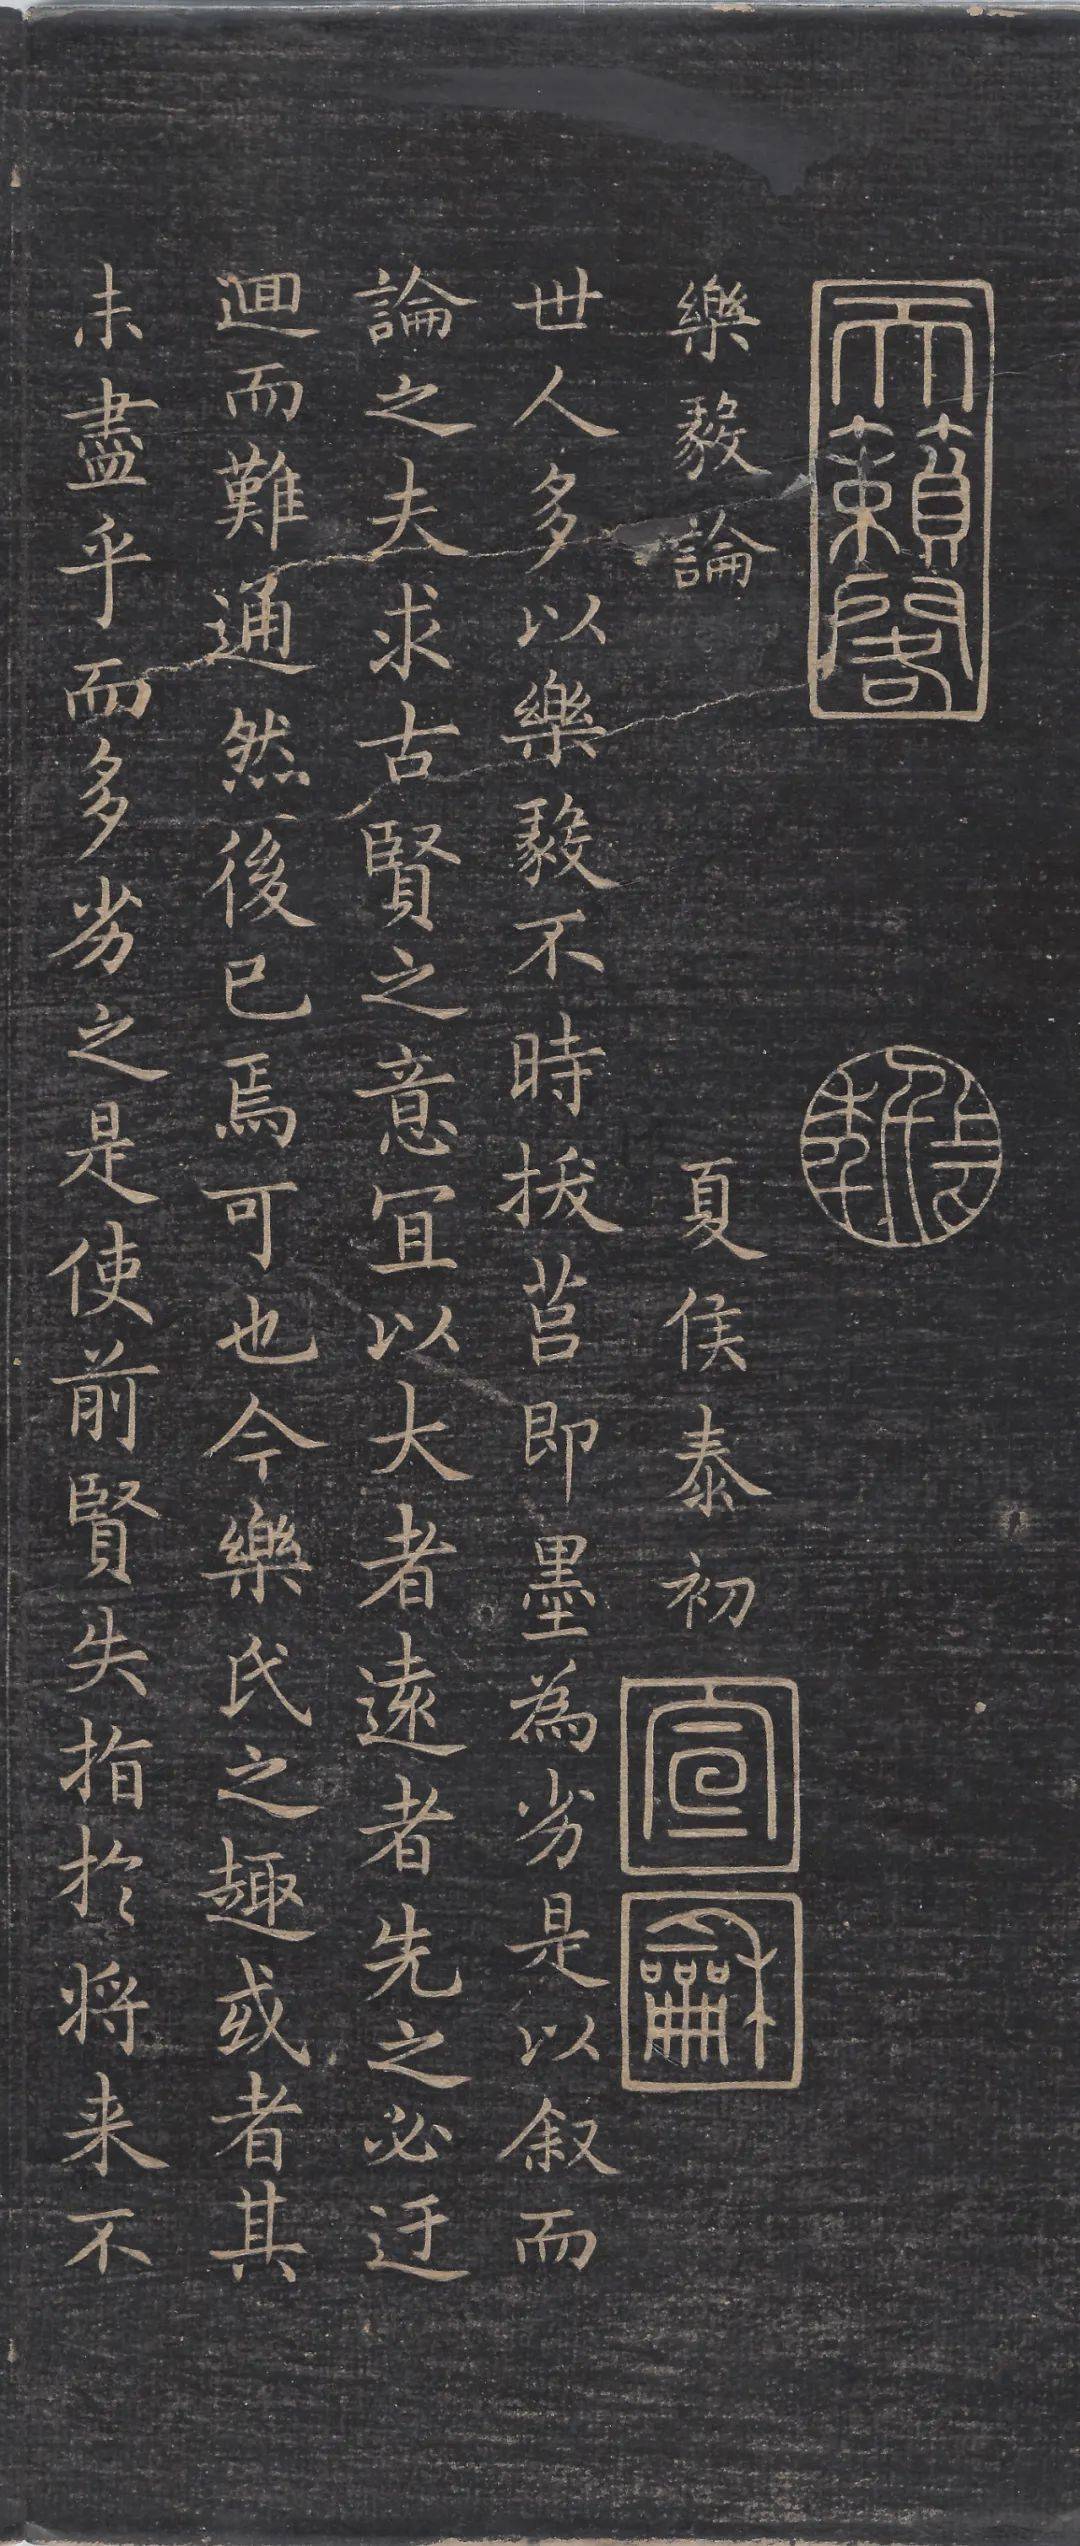 天籟閣
樂毅論 夏侯泰初
宣
龢
世人多以樂毅不時拔莒即墨為劣是以叙而
論之夫求古賢之意冝以大者遠者先之必迂
迴而難通然後已焉可也今樂氏之趣或者其
未盡乎而多劣之是使前賢失指於將来不